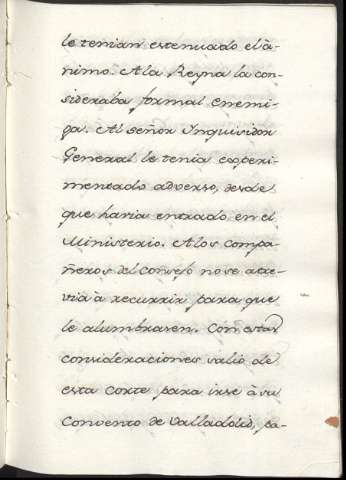 le tenian estenuado el à-
nimo. A la Reyna la con-
sideraba formal enemi-
ga. Al señor Inquisidor
General le tenia experi-
mentado adverso, desde
que havia entrado en el
Ministerio. A los compa-
ñeros del Consejo no se atre-
via à recurrir para que
le alumbrasen. Con estas
consideraciones salió de
esta Corte para irse à su
Convento de Valladolid, pa-